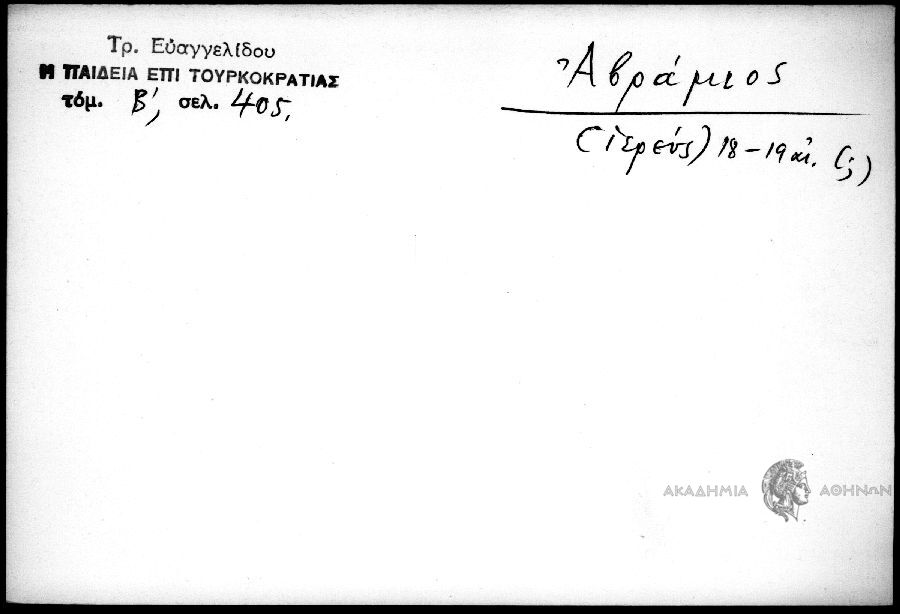 Τρ. Εὐαγγελίδου
Η ΠΑΙΔΕΙΑ ΕΠΙ ΤΟΥΡΚΟΚΡΑΤΙΑΣ
τόμ. Β', σελ. 405.
Ἀβράμιος
(ἱερεύς) 18-19 αἰ. (;)
ΑΚΑΔΗΜΙΑ ΑΘΗΝΩΝ